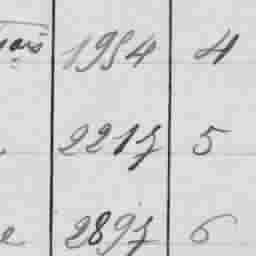 1954 4
2217 5
e 2897 6